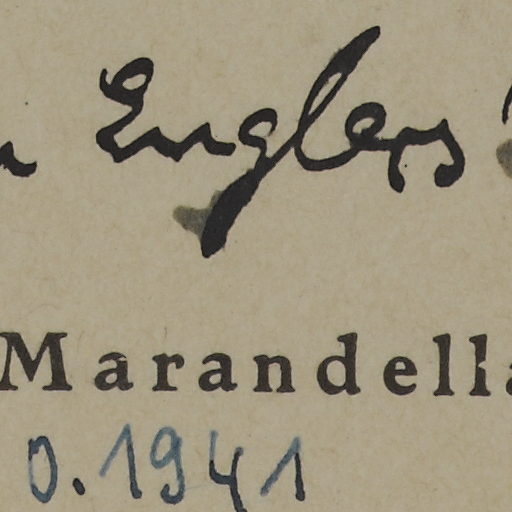 Englers
Marandella
0.1941